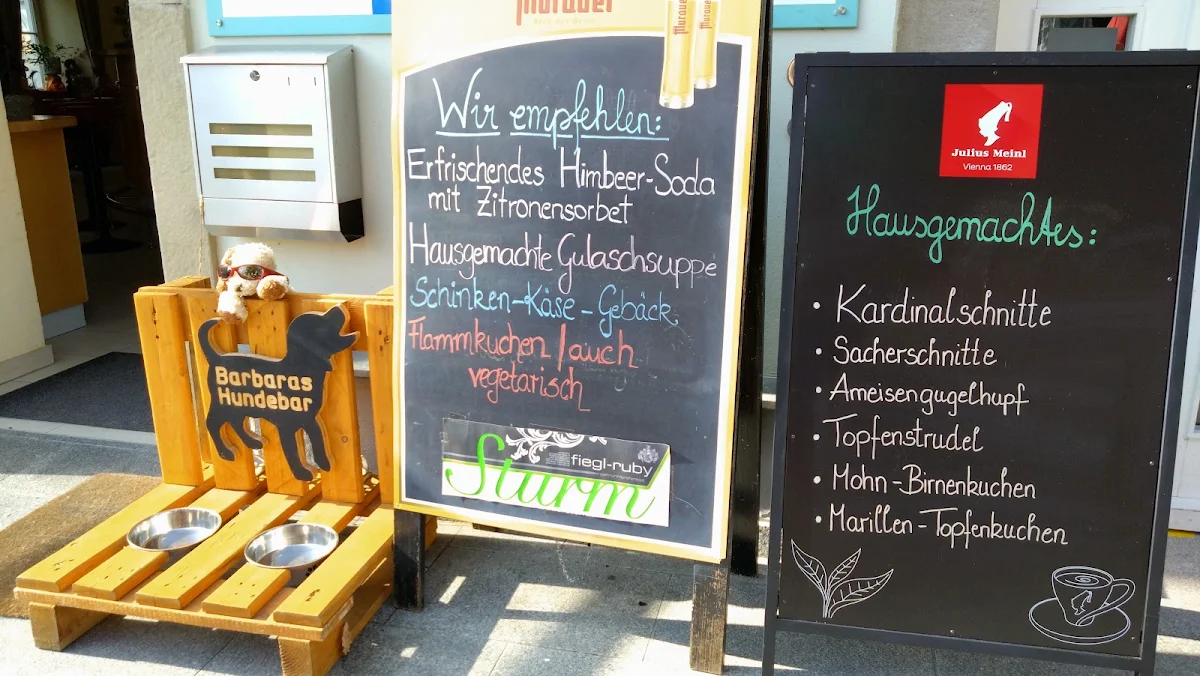 Murauer
Barbaras
Hundebar
Wir empfehlen:
Erfrischendes Himbeer-Soda
mit Zitronensorbet
Hausgemachte Gulaschsuppe
Schinken-Käse-Gebäck
Flammkuchen/auch
vegetarisch
fiegl-ruby
Sturm
Julius Meinl
Vienna 1862
Hausgemachtes:
• Kardinalschnitte
• Sacherschnitte
• Ameisengugelhupf
• Topfenstrudel
• Mohn-Birnenkuchen
• Marillen-Topfenkuchen